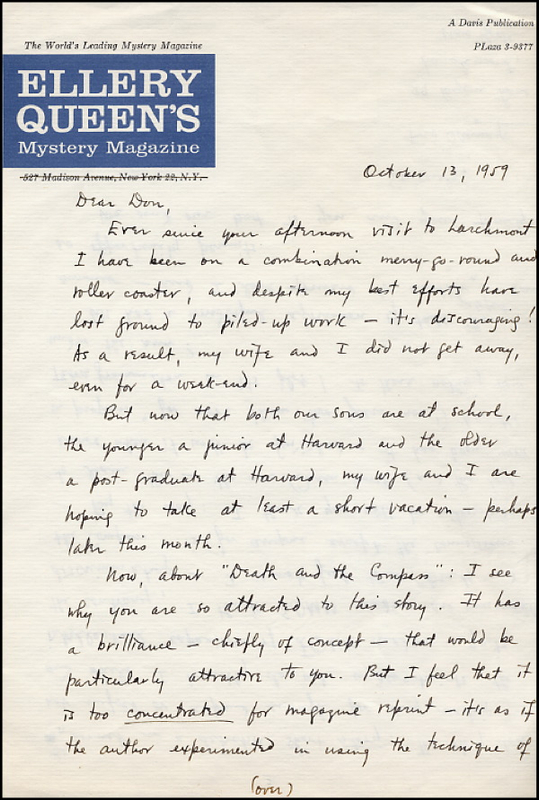 A Davis Publication
The World's Leading Mystery Magazine
PLaza 3-9377
ELLERY
QUEEN'S
Mystery Magazine
527 Madison Avenue, New York 22, N.Y.
October 13, 1959
Dear Don,
Ever since your afternoon visit to Larchmont
I have been on a combination merry-go-round and
roller coaster, and despite my best efforts have
lost ground to piled-up work – it's discouraging!
As a result, my wife and I did not get away,
even for a week-end.
But now that both our sons are at school,
the younger a junior at Harvard and the older
a post-graduate at Harvard, my wife and I are
hoping to take at least a short vacation – perhaps
later this month.
Now, about "Death and the Compass": I see
why you are so attracted to this story. It has
a brilliance – chiefly of concept – that would be
particularly attractive to you. But I feel that it
is too concentrated for magazine reprint – it's as if
the author experimented in using the technique of
(over)